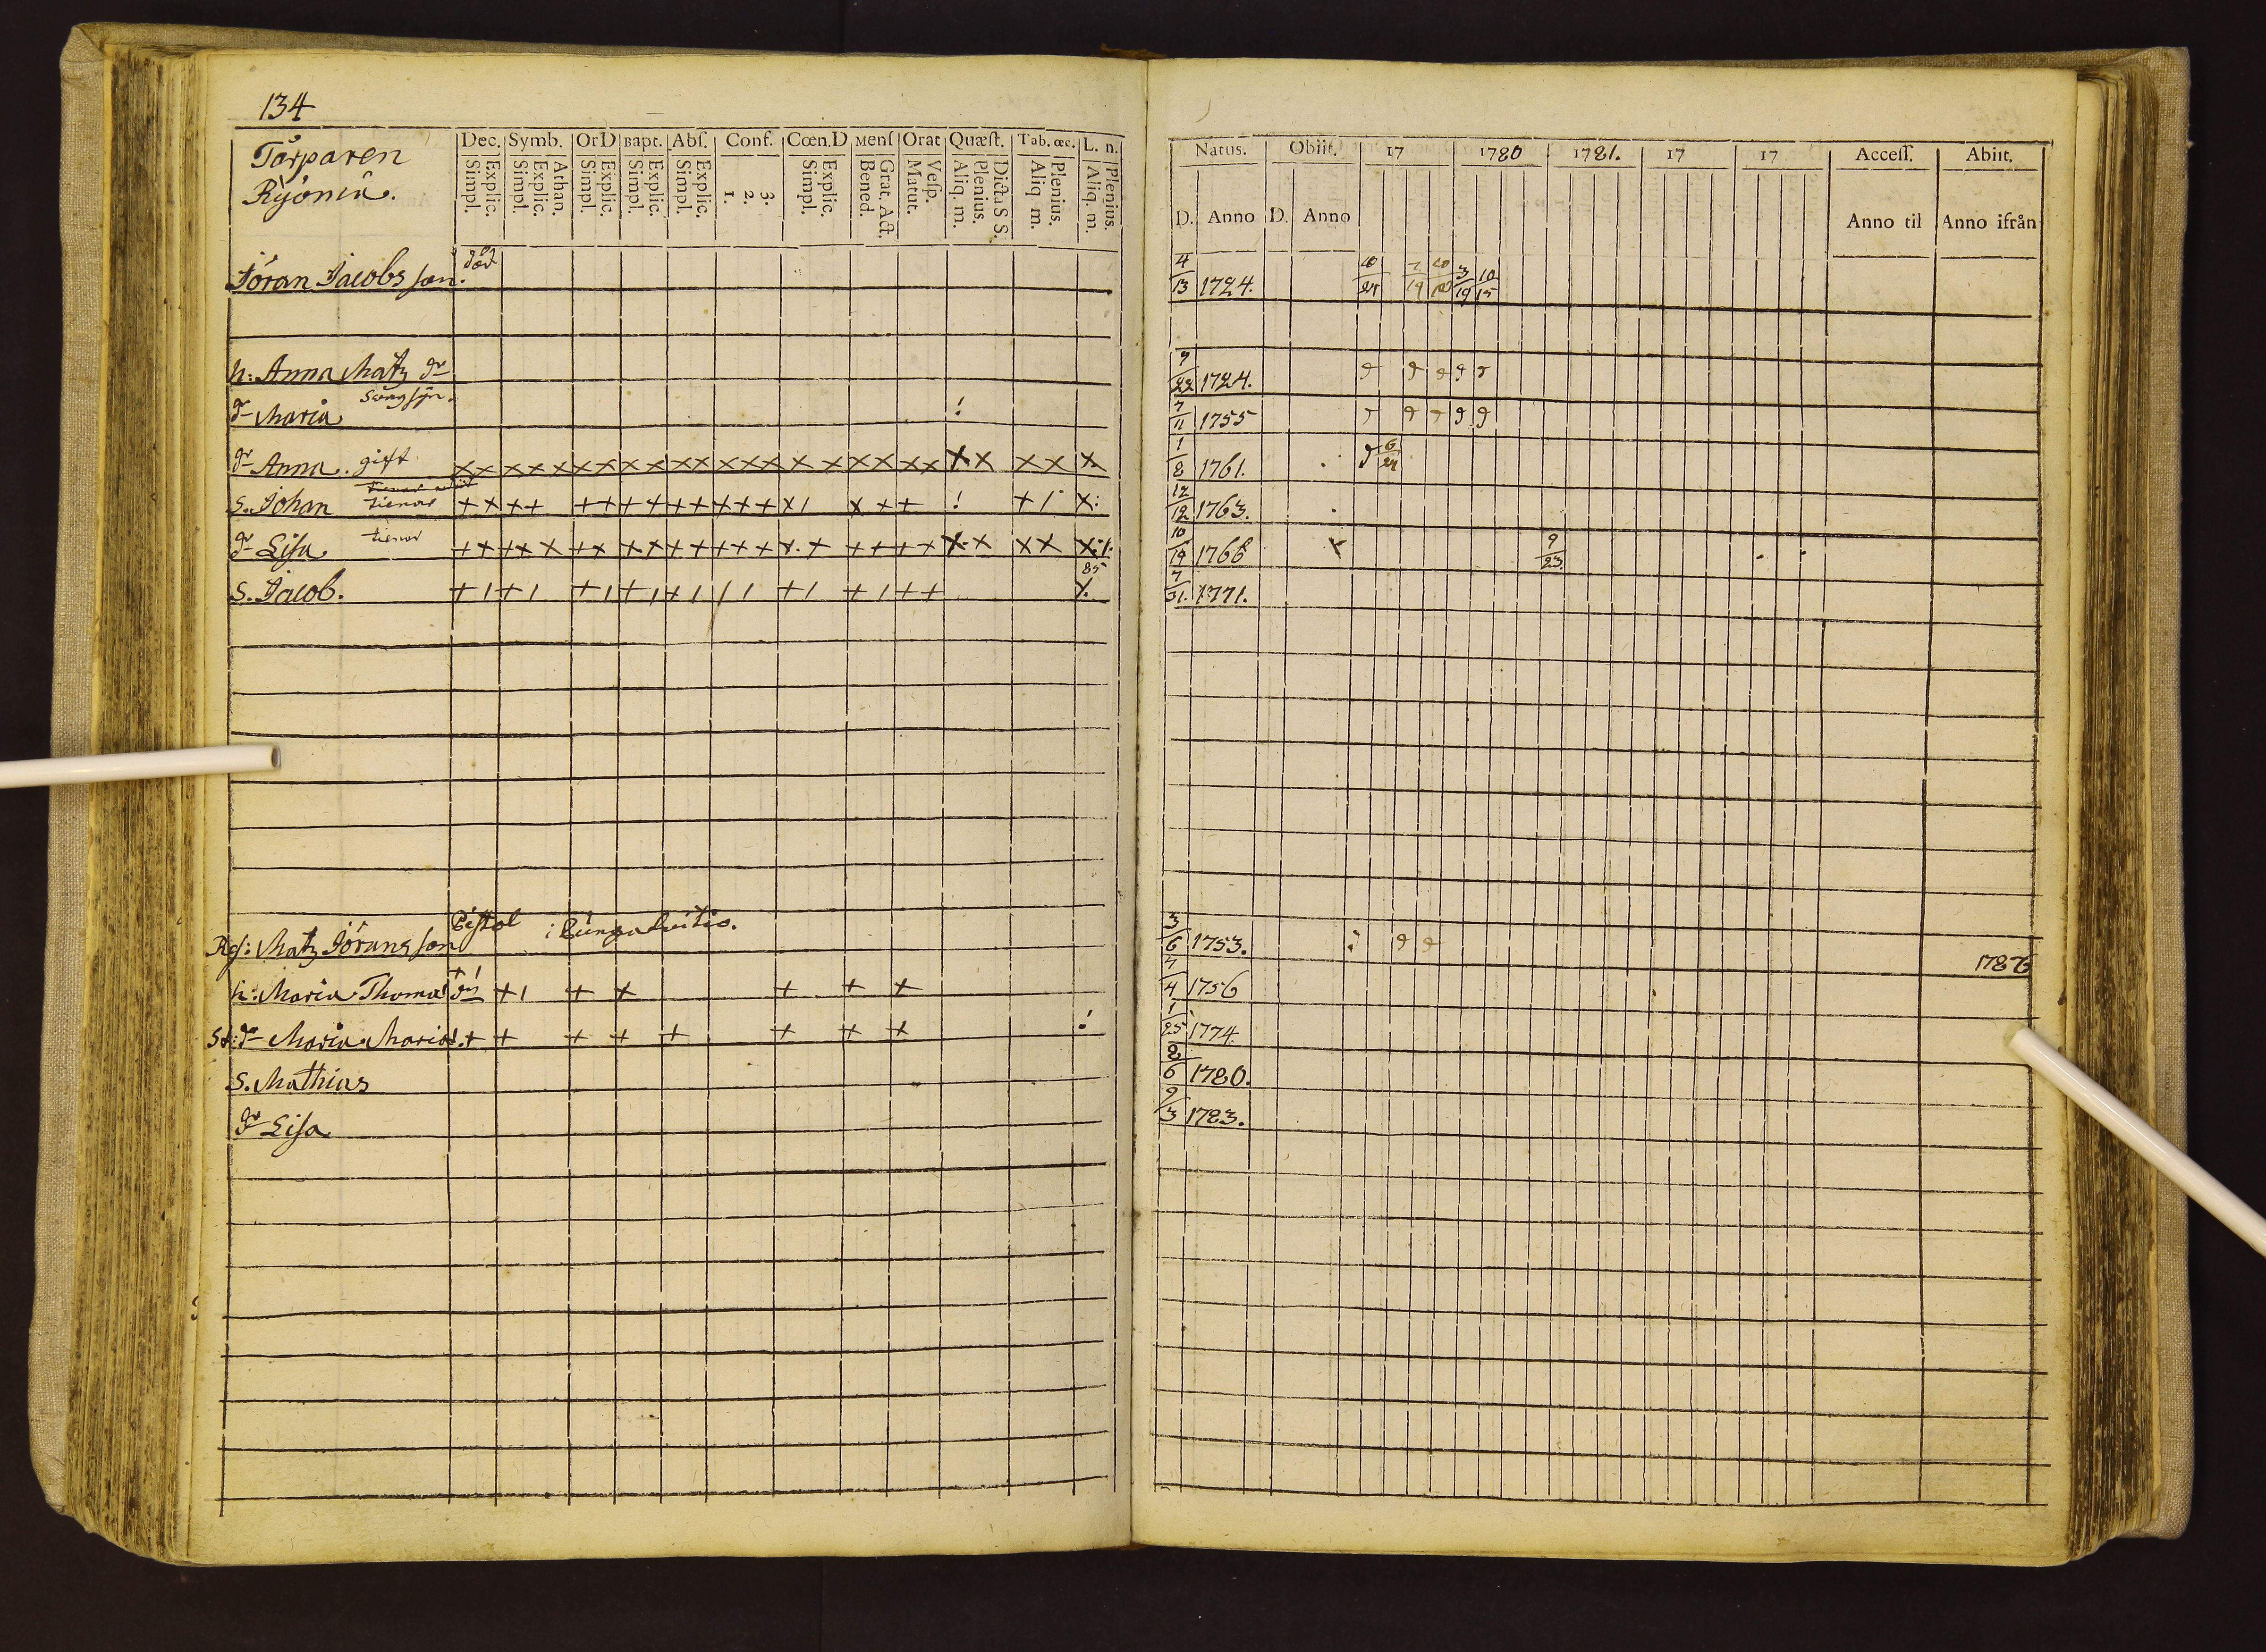 134
Dec. Symb. OrD Bapt. Abſ. Conf. Cœn.D Menſ Orat Quæſt. Tab. œc. L. n.
Explic. Simpl. Athan. Explic. Simpl. Explic. Simpl. Explic. Simpl. Explic. Simpl. 3. 2. 1. Explic. Simpl. Grat. Act. Bened. Veſp. Matut. Dicta S S. Plenius. Aliq. m. Plenius. Aliq m. Plenius. Aliq. m.
Torparen
Ryömä.
Jöran Jacobs son. död
h: Anna Matz dr
dr Maria
dr Anna. gift
s. Johan tienar
dr Lisa tienar
85
s. Jacob.
Matz Jörans son
h: Maria Thomæ dr
dr Maria Mariæ
s. Mathias
dr Lisa
Natus. Obiit. 17 1780 1781. 17 17 Acceſſ. Abiit.
D. Anno D. Anno Anno til Anno ifrån
4/13 1724. 3/19 10/15
9/22 1724.
7/11 1755
1/8 1761. 6/24
12/12 1763.
10/19 1768 9/23
7/31. 1771.
3/6 1753. 1786
7/4 1756
1/25 1774
2/6 1780.
9/3 1783.